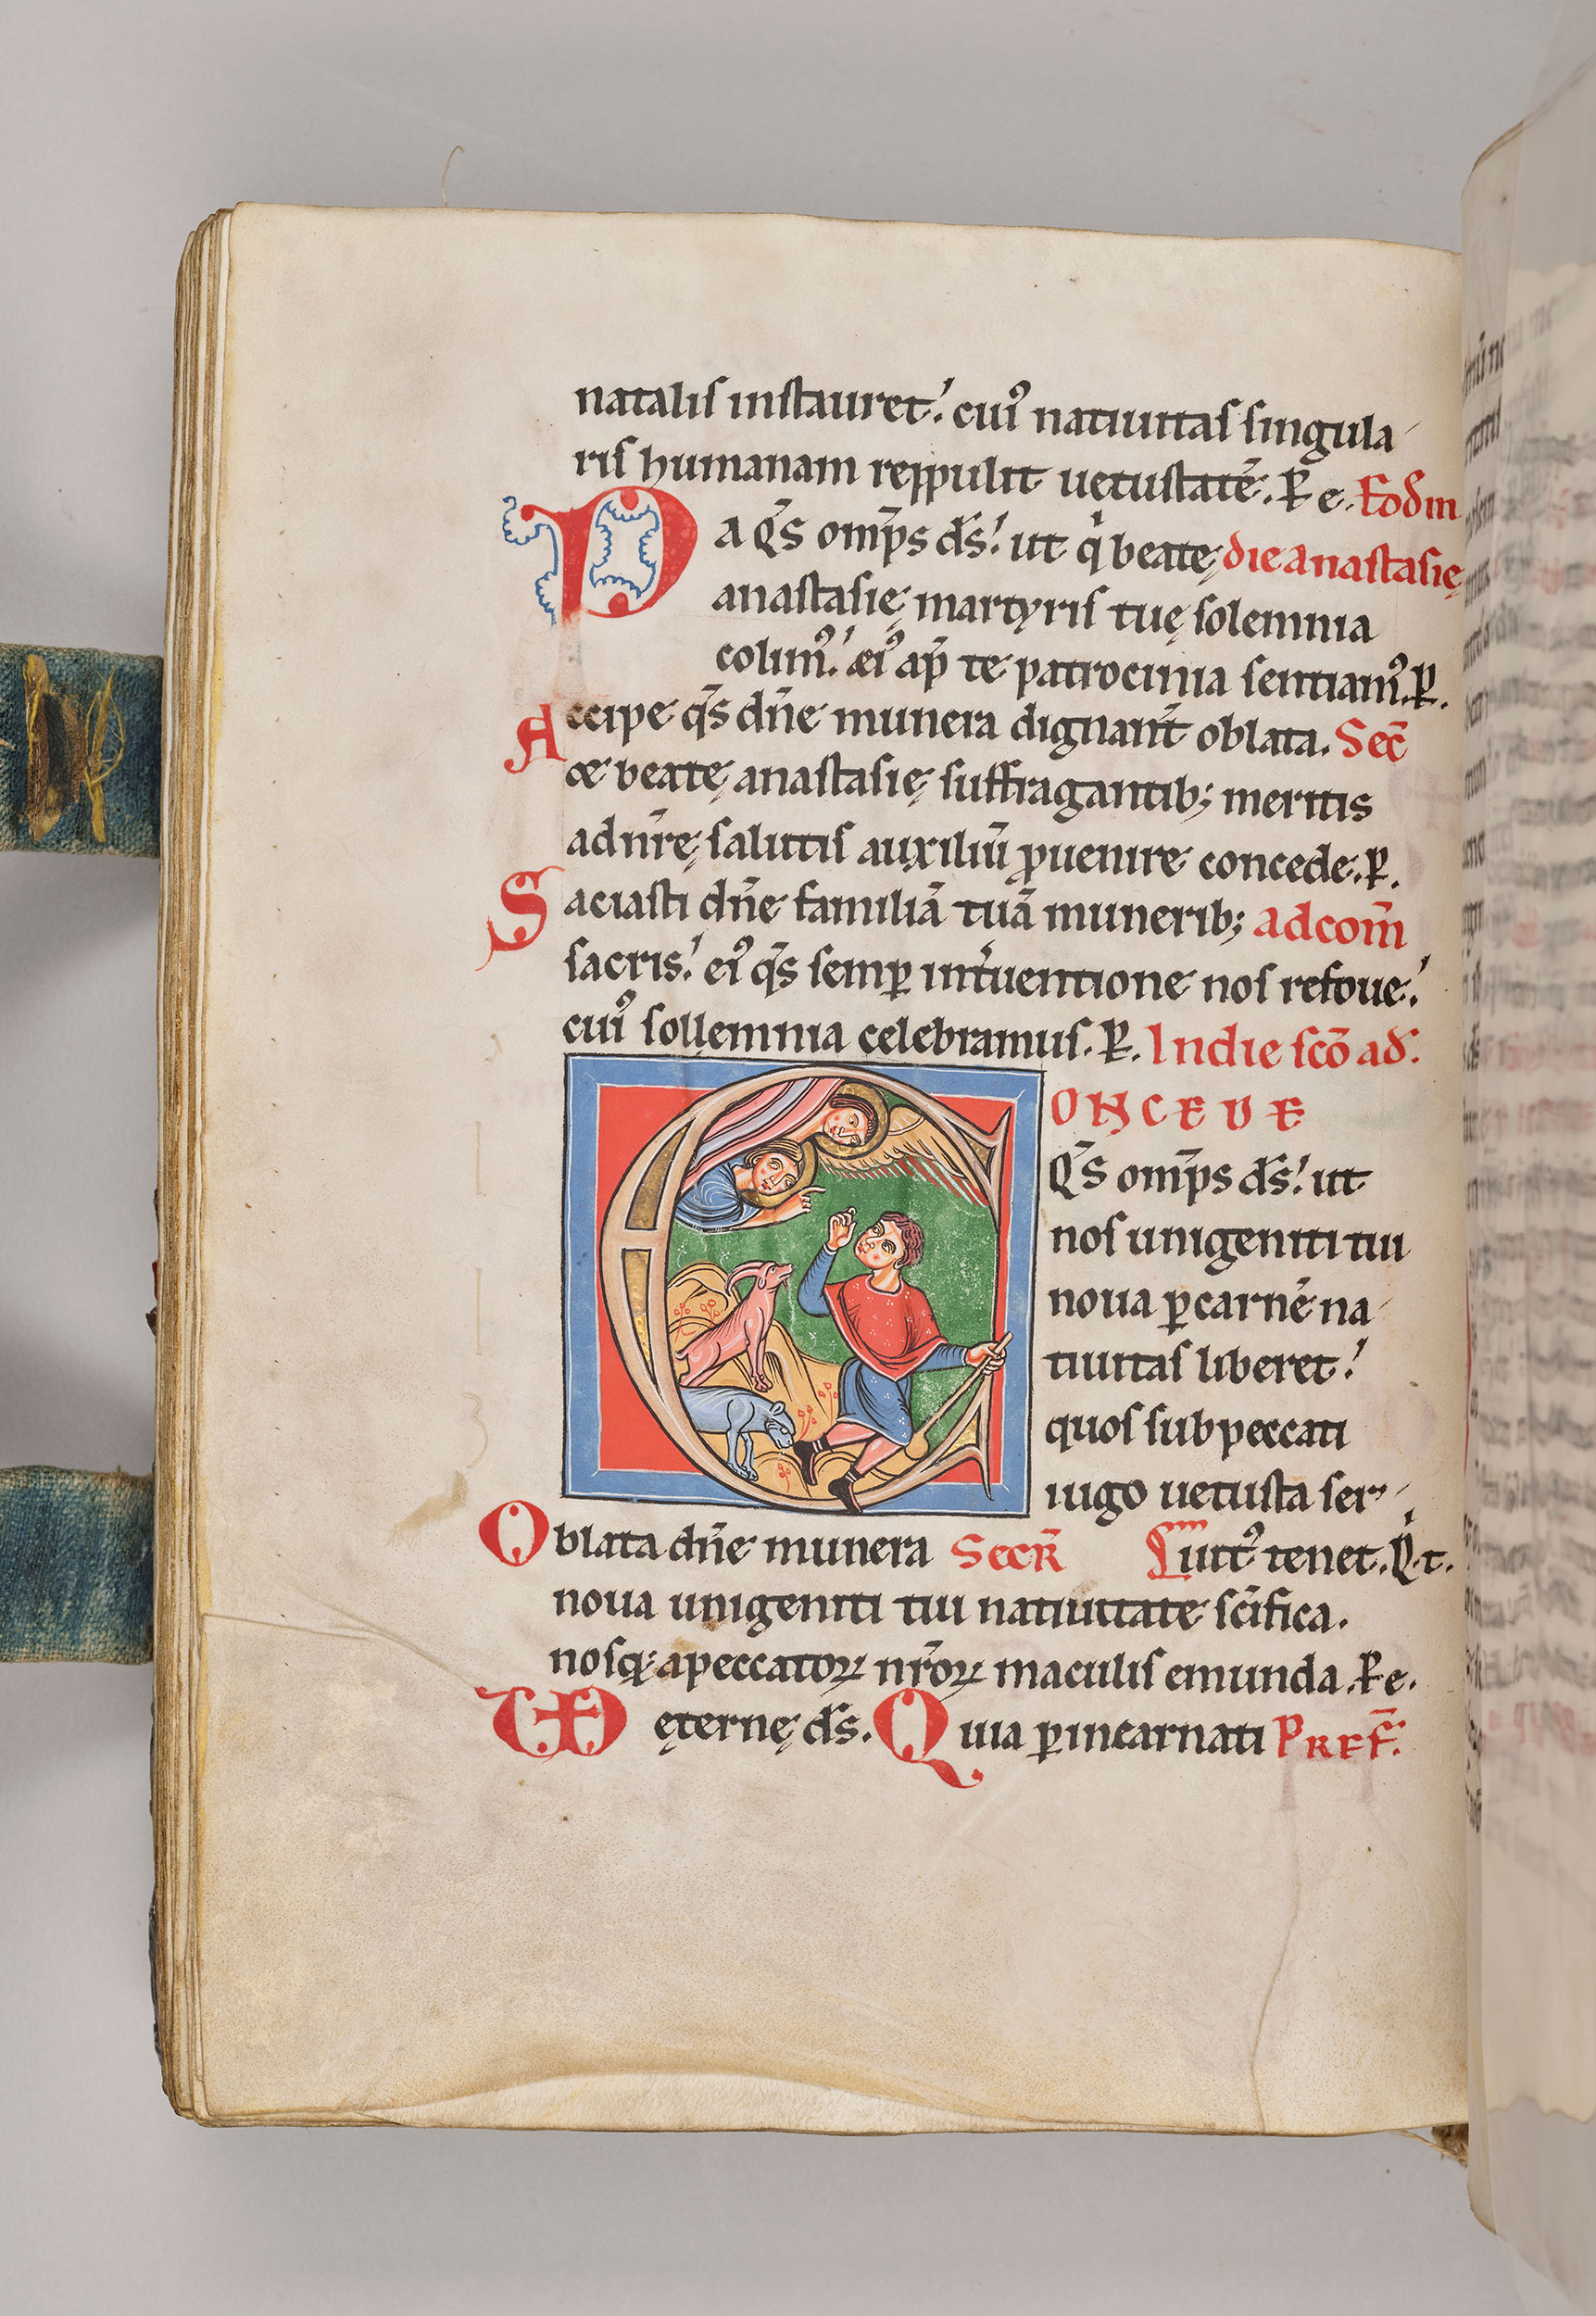 natalis instauret. cuiꝰ natiuitas singula
ris humanam reppulit uetustatē. P e. Eodm
DA q̄s omp̄s ds̄. ut qi beatę die anastasię
anastasię martyris tuę solemnia
colimꝰ. æiꝰ ap̄ te patrocinia sentiamꝰ. P.
Accipe q̄s dn̄e munera dignant̄ oblata. Sec̄
æ beatę anastasię suffragantib; meritis
ad nr̄ę salutis auxiliū ꝓuenire concede. P.
Saciasti dn̄e familiā tuā munerib; ad com̄
sacris. eiꝰ q̄s semꝑ int̄uentione nos refoue.
cuiꝰ sollemnia celebramus. P. In die sc̄o ad.
CONCEDE
Q̄s omp̄s ds̄. ut
nos unigeniti tui
noua ꝑ carnē na
tiuitas liberet.
quos sub peccati
iugo uetusta ser
Oblata dn̄e munera Secr̄ uitꝰ tenet. Q t.
noua unigeniti tui natiuitate sc̄ifica.
nosq; a peccatoꝝ nr̄oꝝ maculis emunda. P e.
VD ęternę ds̄. Quia ꝑ incarnati PREF̄.